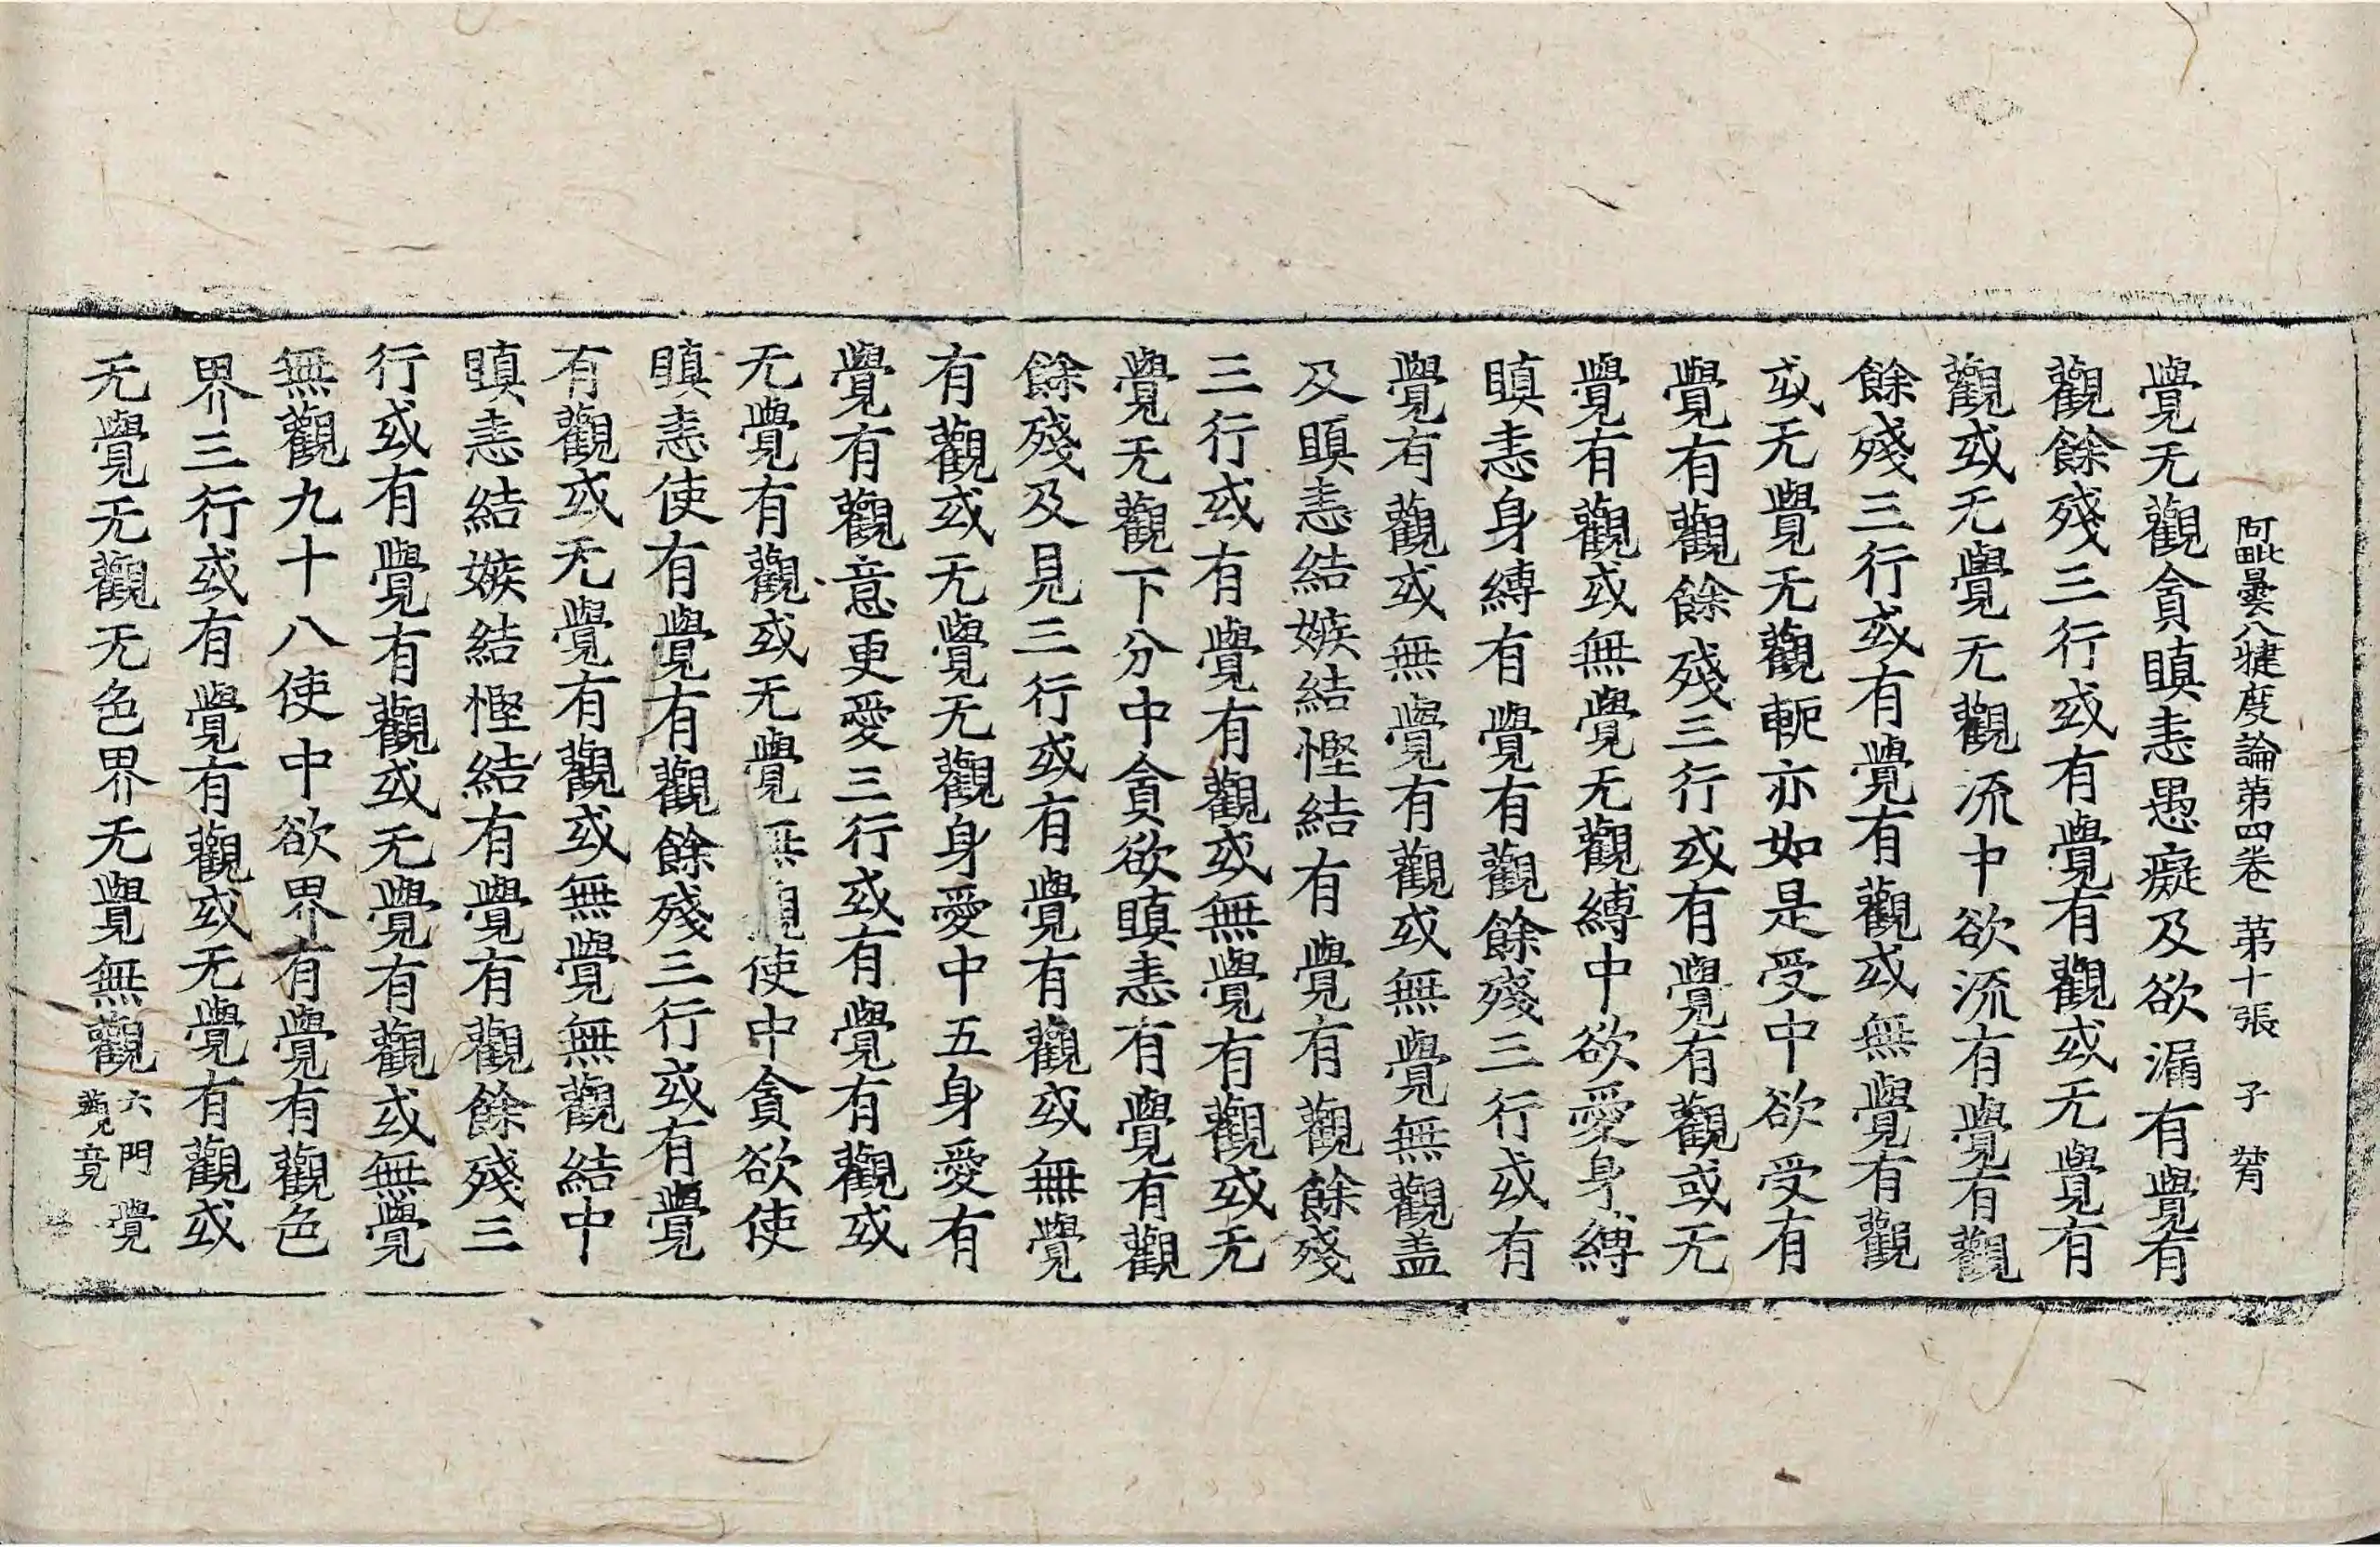 阿毗曇八犍度論第四卷 第十張 子
覺无觀貪瞋恚愚癡及欲漏有覺有
觀餘殘三行或有覺有觀或无覺有
觀或无覺无觀流中欲流有覺有觀
餘殘三行或有覺有觀或無覺有觀
或无覺无觀軛亦如是受中欲受有
覺有觀餘殘三行或有覺有觀或无
覺有觀或無覺无觀縛中欲愛身縛
瞋恚身縛有覺有觀餘殘三行或有
覺有觀或無覺有觀或無覺無觀盖
及瞋恚結嫉結慳結有覺有觀餘殘
三行或有覺有觀或無覺有觀或无
覺无觀下分中貪欲瞋恚有覺有觀
餘殘及見三行或有覺有觀或無覺
有觀或无覺无觀身愛中五身愛有
覺有觀意更愛三行或有覺有觀或
无覺有觀或无覺無觀使中貪欲使
瞋恚使有覺有觀餘殘三行或有覺
有觀或无覺有觀或無覺無觀結中
瞋恚結嫉結慳結有覺有觀餘殘三
行或有覺有觀或无覺有觀或無覺
無觀九十八使中欲界有覺有觀色
界三行或有覺有觀或无覺有觀或
无覺无觀无色界无覺無觀六門覺
觀竟